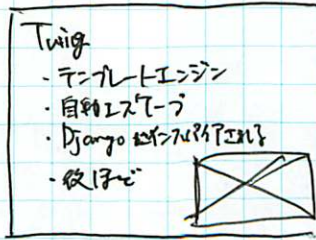 Twig
・テンプレートエンジン
・自動エスケープ
・Djangoにインスパイアされる
・後ほど